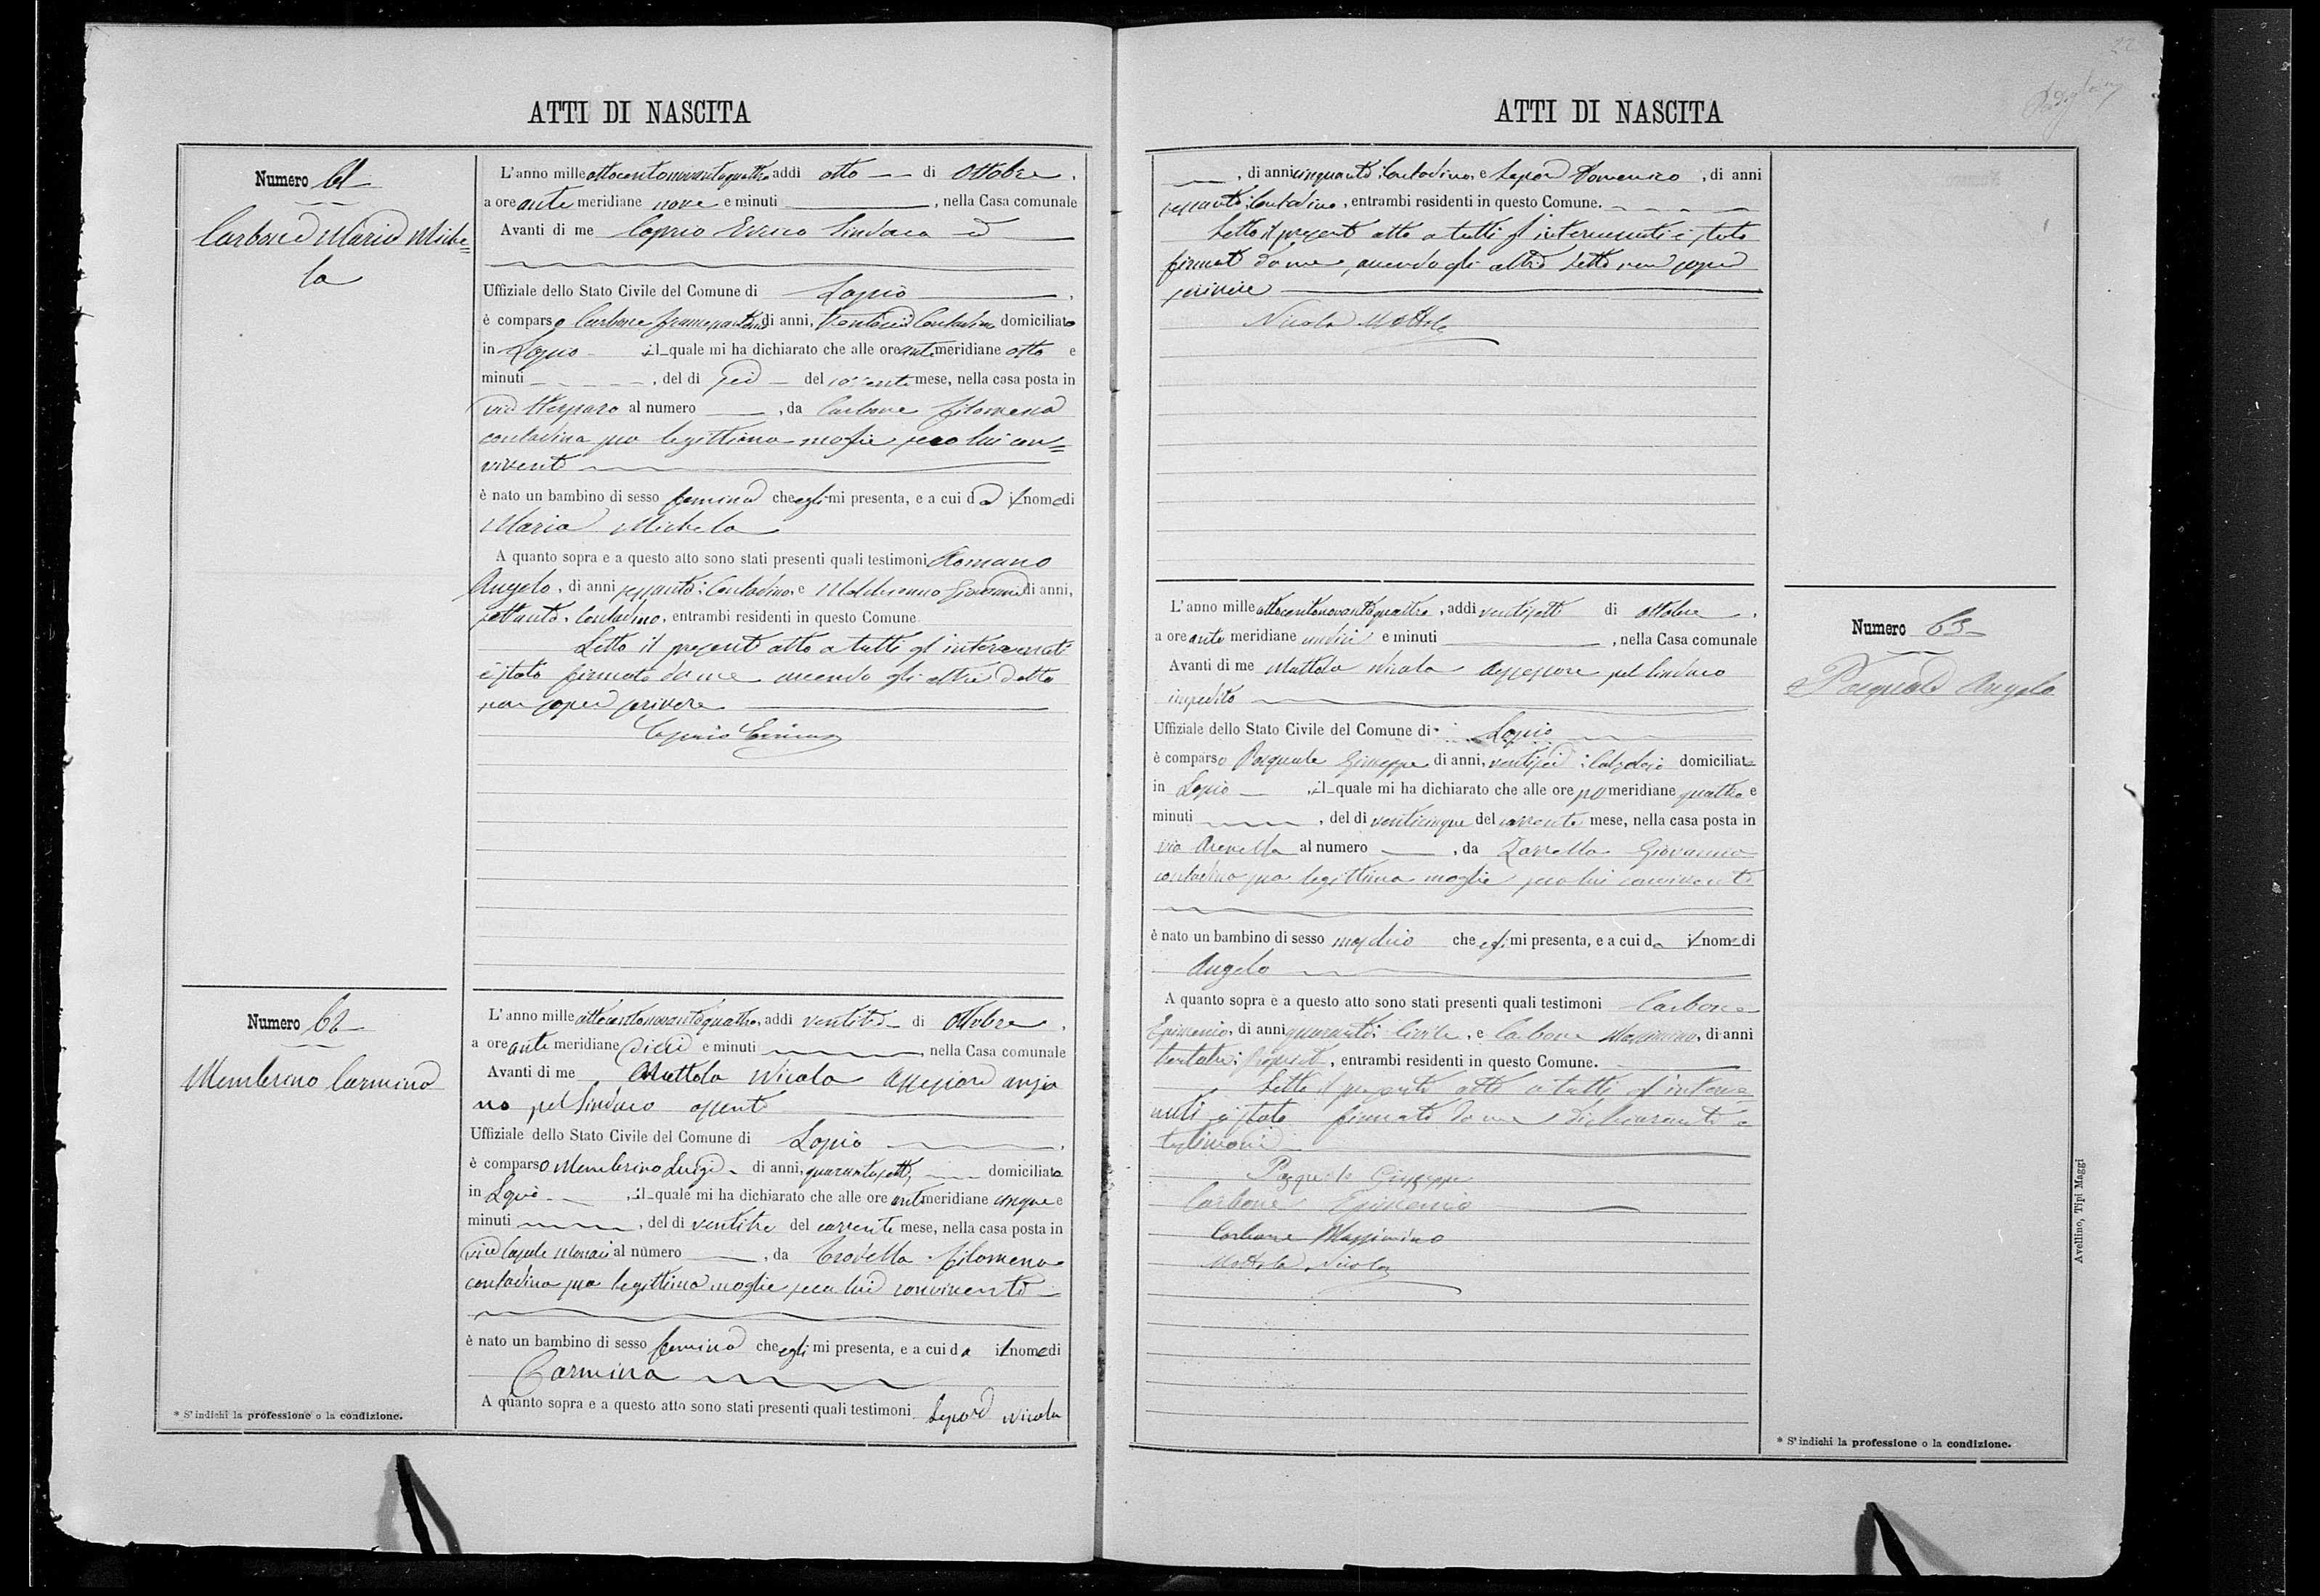 ATTI DI NASCITA
Numero 61
Carbone Maria Miche=
la
L'anno mille ottocentonovantaquattro addi otto di Ottobre,
a ore ante meridiane nove e minuti , nella Casa comunale
Avanti di me Caprio Errico Sindaco ed
Uffiziale dello Stato Civile del Comune di Lapio
è comparso Carbone di anni, Contadino domiciliato
in Lapio il quale mi ha dichiarato che alle ore ante meridiane otto e
minuti , del dì sei del corrente mese, nella casa posta in
via al numero , da Carbone Filomena
contadina sua legittima moglie seco lui con=
vivente
è nato un bambino di sesso feminino che egli mi presenta, e a cui dà il nome di
Maria Michela
A quanto sopra e a questo atto sono stati presenti quali testimoni Romano
Angelo, di anni sessanta; Contadino, e di anni,
settanta, Contadino, entrambi residenti in questo Comune
Letto il presente atto a tutti gl'intervenuti
è stato firmato da me avendo gli altri detto
non saper scrivere
Caprio Errico
Numero 62
Membrino Carmina
L'anno mille ottocentonovantaquattro, addi ventitrè di Ottobre,
a ore ante meridiane dieci e minuti , nella Casa comunale
Avanti di me Mottola Nicola Assessore anzia
no pel Sindaco assente
Uffiziale dello Stato Civile del Comune di Lapio
è comparso Membrino Luigi di anni, quarantasette, domiciliato
in Lapio , il quale mi ha dichiarato che alle ore ante meridiane cinque e
minuti , del dì ventitre del corrente mese, nella casa posta in
via al numero , da Filomena
contadina sua legittima moglie seco lui convivente
è nato un bambino di sesso feminino che egli mi presenta, e a cui da il nome di
Carmina
A quanto sopra e a questo atto sono stati presenti quali testimoni Nicola
* S'indichi la professione o la condizione.
ATTI DI NASCITA
, di anni cinquanta; Contadino, e Domenico, di anni
sessanta; Contadino, entrambi residenti in questo Comune.
Letto il presente atto a tutti gl'intervenuti è stato
firmato da me, avendo gli altri detto non saper
scrivere
Nicola Mottola
L'anno mille ottocentonovantaquattro, addi ventisette di ottobre,
a ore ante meridiane undici e minuti , nella Casa comunale
Avanti di me Mottola Nicola Assessore pel Sindaco
impedito
Uffiziale dello Stato Civile del Comune di Lapio
è comparso Pasquale Giuseppe di anni, ventisei; Calzolaio domiciliato
in Lapio , il quale mi ha dichiarato che alle ore pomeridiane quattro e
minuti , del dì venticinque del corrente mese, nella casa posta in
via Arenella al numero , da Giovannina
contadina sua legittima moglie seco lui convivente
è nato un bambino di sesso maschio che egli mi presenta, e a cui da il nome di
Angelo
A quanto sopra e a questo atto sono stati presenti quali testimoni Carbone
Epimenio, di anni quaranta; Civile, e Carbone Massimino, di anni
trentatre; , entrambi residenti in questo Comune.
Letto il presente atto a tutti gl'interve=
nuti è stato firmato da me dichiarante e
testimoni
Pasquale Giuseppe
Carbone Epimenio
Carbone Massimino
Mottola Nicola
Numero 63
Pasquale Angelo
* S'indichi la professione o la condizione.
Avellino, Tipi Maggi